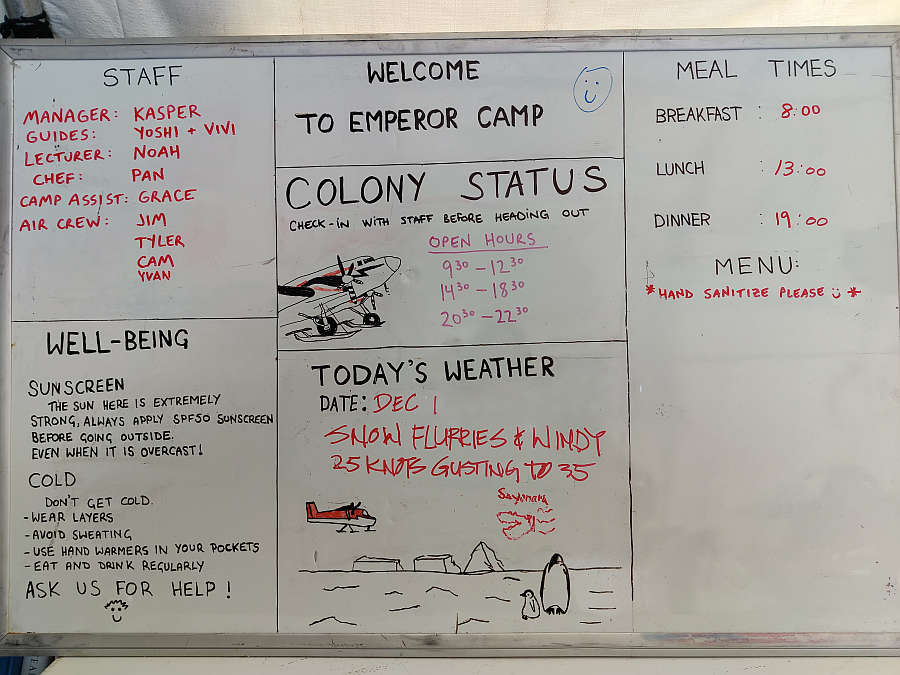 STAFF
MANAGER: KASPER
GUIDES: YOSHI + VIVI
LECTURER: NOAH
CHEF: PAN
CAMP ASSIST: GRACE
AIR CREW: JIM
TYLER
CAM
YVAN
WELL-BEING
SUNSCREEN
THE SUN HERE IS EXTREMELY
STRONG, ALWAYS APPLY SPF50 SUNSCREEN
BEFORE GOING OUTSIDE.
EVEN WHEN IT IS OVERCAST!
COLD
DON'T GET COLD.
-WEAR LAYERS
-AVOID SWEATING
-USE HAND WARMERS IN YOUR POCKETS
-EAT AND DRINK REGULARLY
ASK US FOR HELP!
WELCOME
TO EMPEROR CAMP
COLONY STATUS
CHECK-IN WITH STAFF BEFORE HEADING OUT
OPEN HOURS
9³⁰ - 12³⁰
14³⁰ - 18³⁰
20³⁰ - 22³⁰
TODAY'S WEATHER
DATE: DEC 1
SNOW FLURRIES & WINDY
25 KNOTS GUSTING TO 35
MEAL TIMES
BREAKFAST : 8:00
LUNCH : 13:00
DINNER : 19:00
MENU:
*HAND SANITIZE PLEASE *